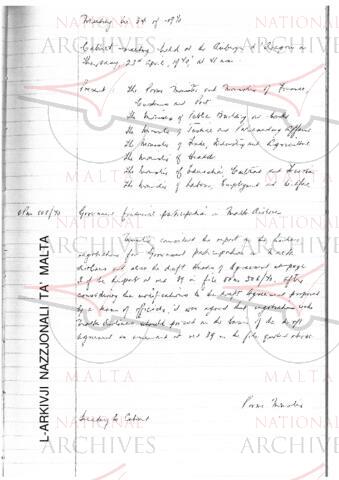 Meeting No 34 of 1970
Cabinet meeting held at the Auberge d'Aragon on
Thursday, 23rd April, 1970 at 11 a.m.
Present: The Prime Minister and Minister of Finance,
Customs and Port
The Minister of Public Building and Works
The Minister of Justice and Parliamentary Affairs
The Minister of Trade, Industry and Agriculture
The Minister of Health
The Minister of Education, Culture and Tourism
The Minister of Labour, Employment and Welfare
Government financial participation in Malta Airlines
considered the report on the further
negotiations for Government participation in Malta
Airlines and also the draft Heads of Agreement at page
3 of the in file
considering the modifications to the draft Agreement proposed
by a team of officials, it was agreed that negotiations with
Malta Airlines should proceed on the basis of the draft
Agreement as in the file quoted above.
Prime Minister
Secretary to Cabinet
L-ARKIVJI NAZZJONALI TA' MALTA
NATIONAL
ARCHIVES
MALTA